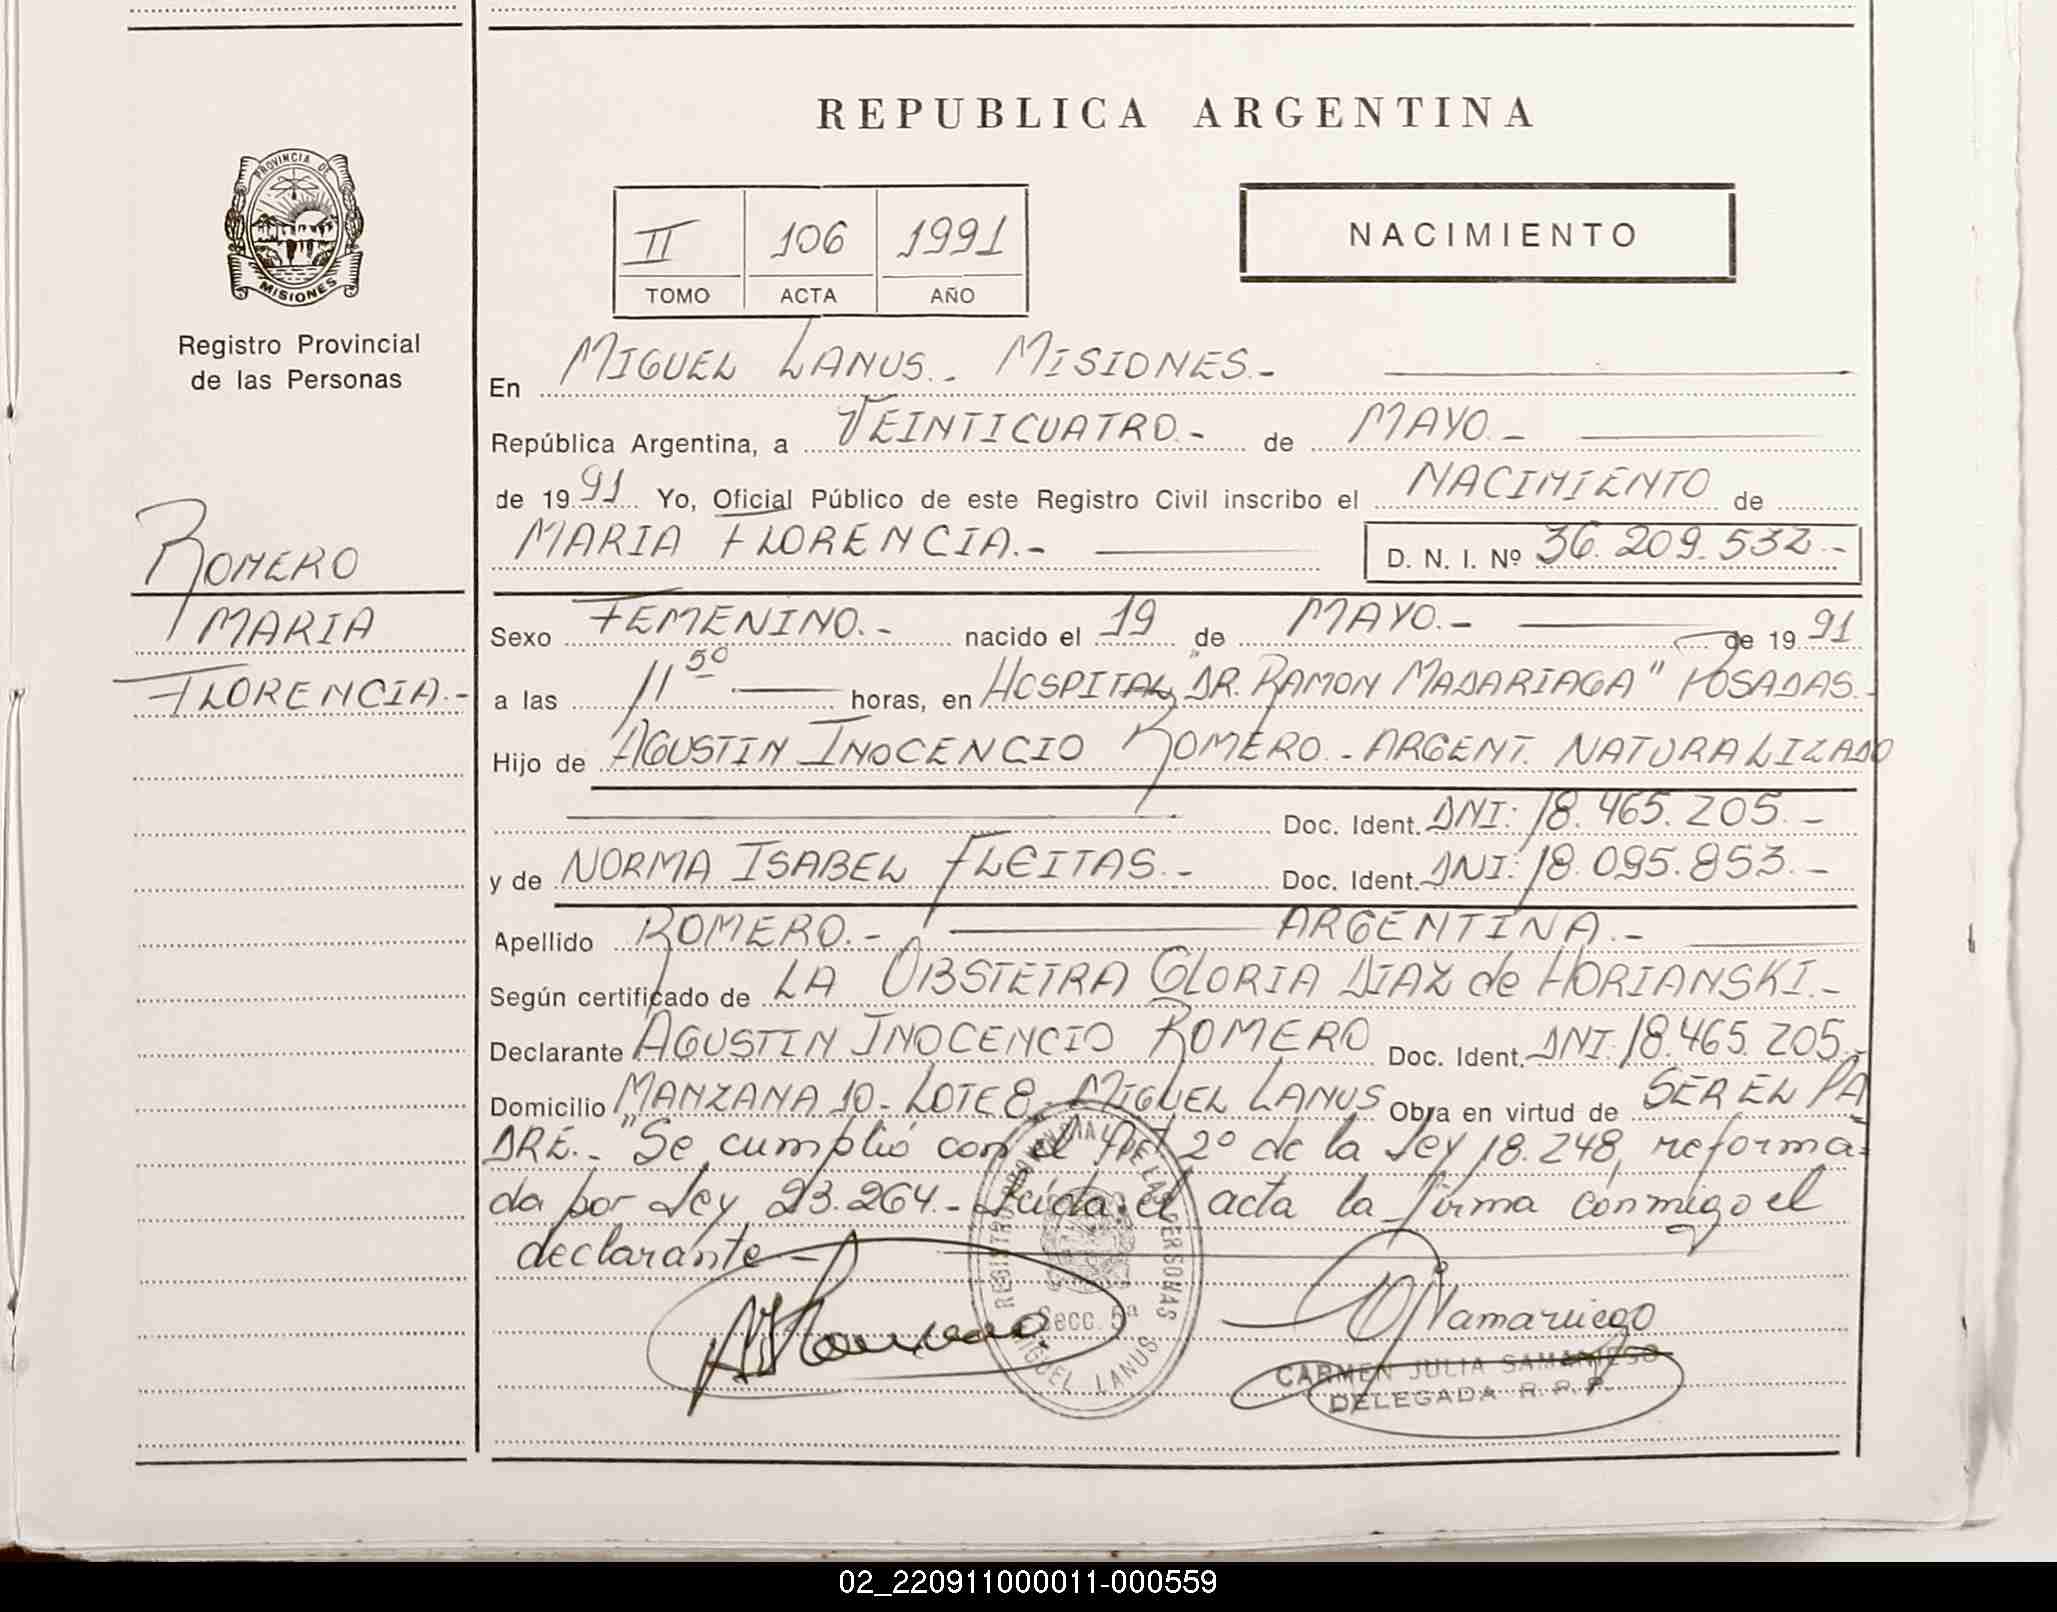 REPUBLICA ARGENTINA
PROVINCIA DE
MISIONES
Registro Provincial
de las Personas
II 106 1991
TOMO ACTA AÑO
NACIMIENTO
ROMERO
MARIA
FLORENCIA.-
En MIGUEL LANUS.- MISIONES.-
República Argentina, a VEINTICUATRO.- de MAYO.-
de 1991 Yo, Oficial Público de este Registro Civil inscribo el NACIMIENTO de
MARIA FLORENCIA.- D. N. I. Nº 36.209.532.-
Sexo FEMENINO.- nacido el 19 de MAYO.- de 1991
a las 11 50 horas, en HOSPITAL "DR. RAMON MADARIAGA" POSADAS.-
Hijo de AGUSTIN INOCENCIO ROMERO.- ARGENT. NATURALIZADO
Doc. Ident. DNI: 18.465.205.-
y de NORMA ISABEL FLEITAS.- Doc. Ident. DNI: 18.095.853.-
Apellido ROMERO.- ARGENTINA.-
Según certificado de LA OBSTETRA GLORIA DIAZ de HORIANSKI.-
Declarante AGUSTIN INOCENCIO ROMERO Doc. Ident. DNI. 18.465.205.-
Domicilio MANZANA 10- LOTE 8- MIGUEL LANUS Obra en virtud de SER EL PA
DRE.- "Se cumplió con el Art 2º de la Ley 18.248, reforma=
da por Ley 23.264.- Leída el acta la firma conmigo el
declarante-
REGISTRO PROVINCIAL DE LAS PERSONAS
Secc. 5ª
MIGUEL LANUS
CARMEN JULIA SAMANIEGO
DELEGADA R.P.P.
02_220911000011-000559